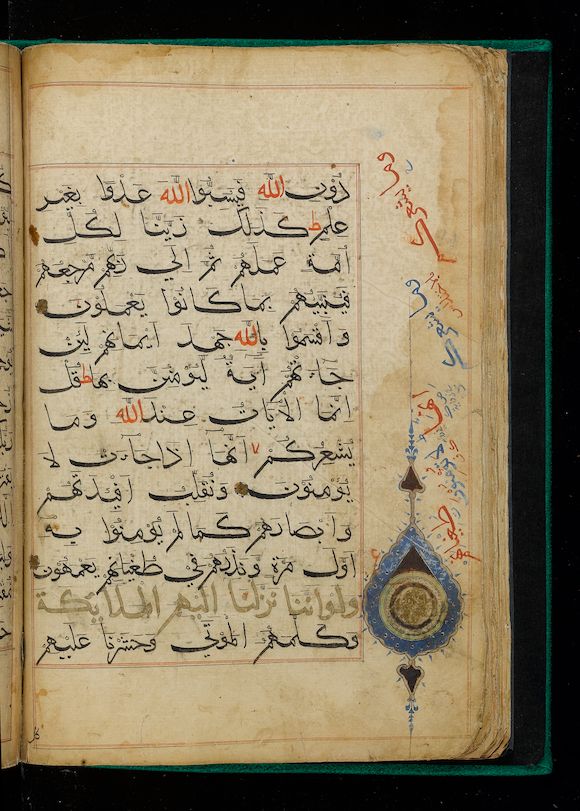 دون الله فيسبوا الله عدوا بغير
علم ط كذلك زينا لكل
امة عملهم ثم الي ربهم مرجعهم
فينبيهم بما كانوا يعملون
واقسموا بالله جهد ايمانهم لين
جاءتهم آية ليومنن بها ط قل
انما الايات عند الله وما
يشعركم ٧ انها اذا جاءت لا
يومنون ونقلب افيدتهم
وابصارهم كما لم يومنوا به
اول مرة ونذرهم في طغيانهم يعمهون
ولو اننا نزلنا اليهم الملايكة
وكلمهم الموتي وحشرنا عليهم